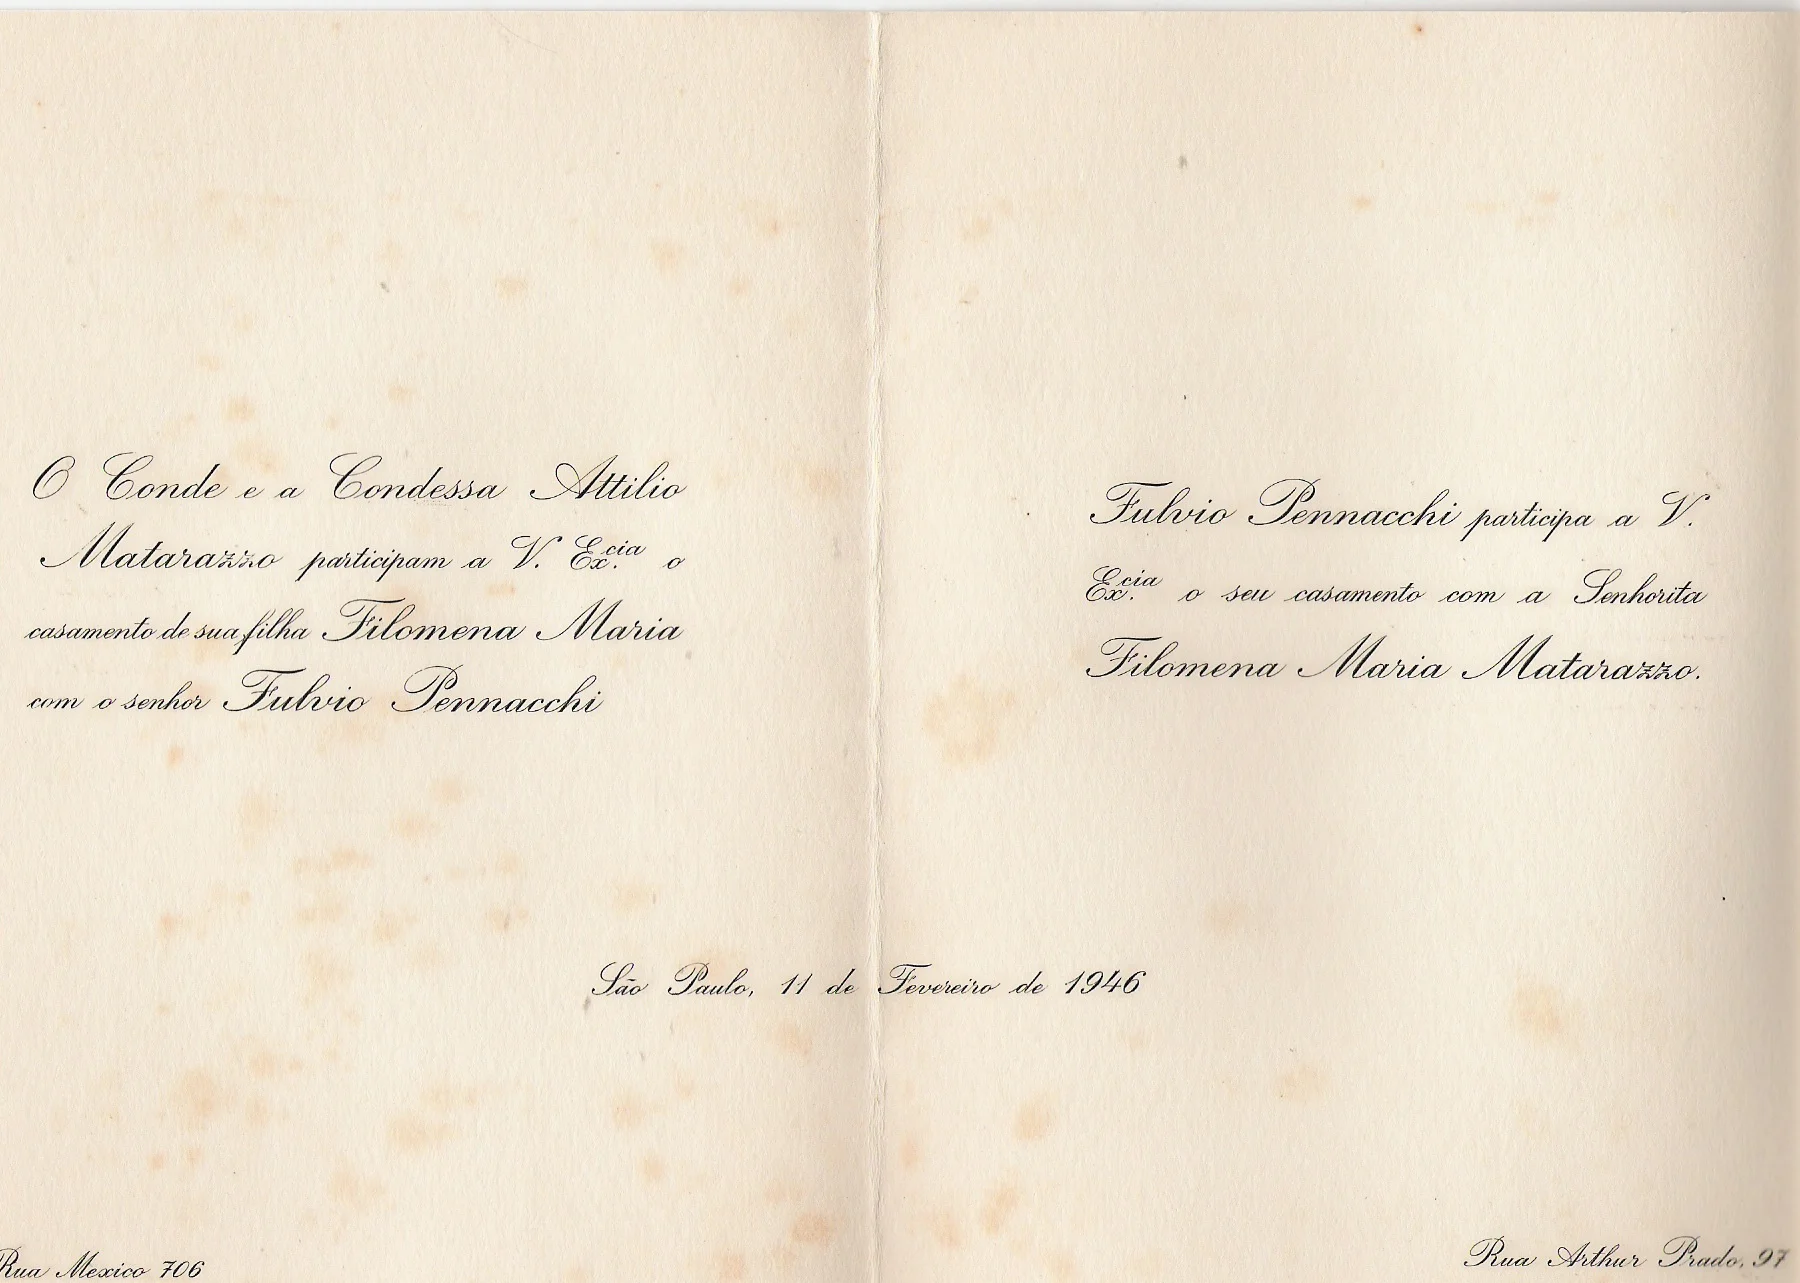 O Conde e a Condessa Attilio
Matarazzo participam a V. Ex.cia o
casamento de sua filha Filomena Maria
com o senhor Fulvio Pennacchi
Fulvio Pennacchi participa a V.
Ex.cia o seu casamento com a Senhorita
Filomena Maria Matarazzo.
São Paulo, 11 de Fevereiro de 1946
Rua Mexico 706
Rua Arthur Prado, 97